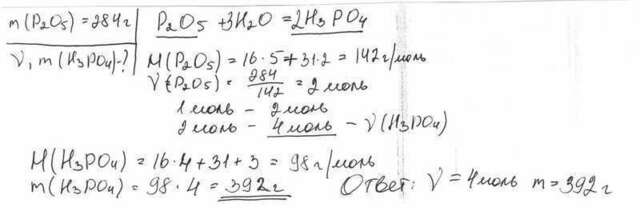 m(P₂O₅)=284г | P₂O₅ + 3H₂O = 2H₃PO₄
ν, m(H₃PO₄)-?
M(P₂O₅) = 16·5+31·2 = 142 г/моль
ν(P₂O₅) = 284/142 = 2 моль
1 моль - 2 моль
2 моль - 4 моль - ν(H₃PO₄)
M(H₃PO₄) = 16·4+31+3 = 98 г/моль
m(H₃PO₄) = 98·4 = 392 г Ответ: ν = 4 моль m = 392 г